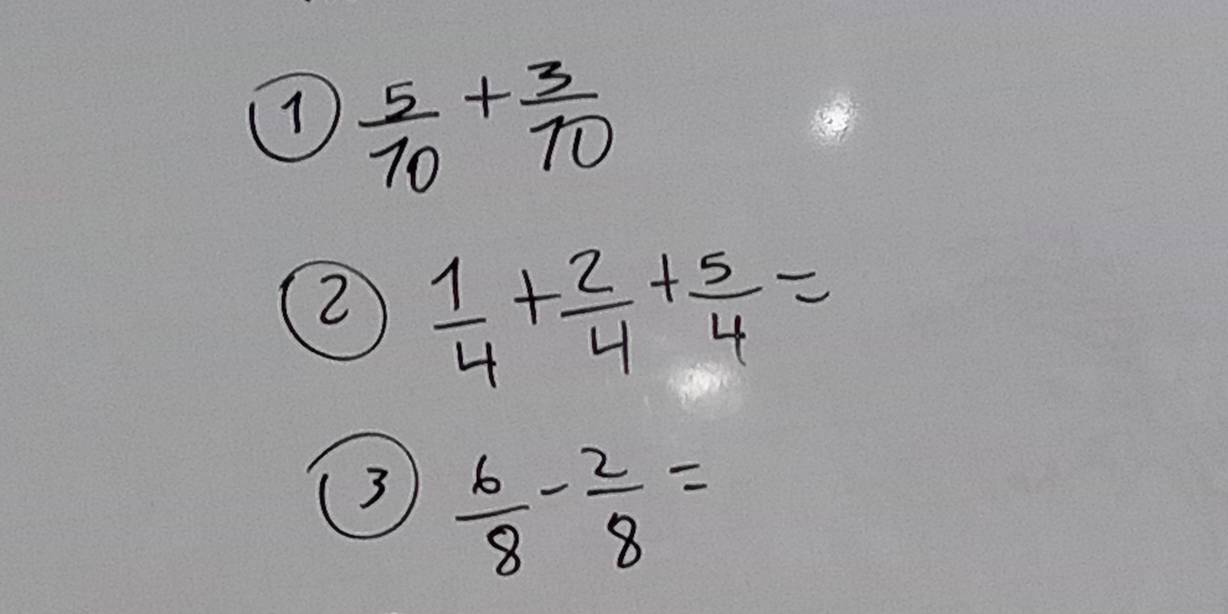 ① 5/10 + 3/10
② 1/4 + 2/4 + 5/4 =
③ 6/8 - 2/8 =